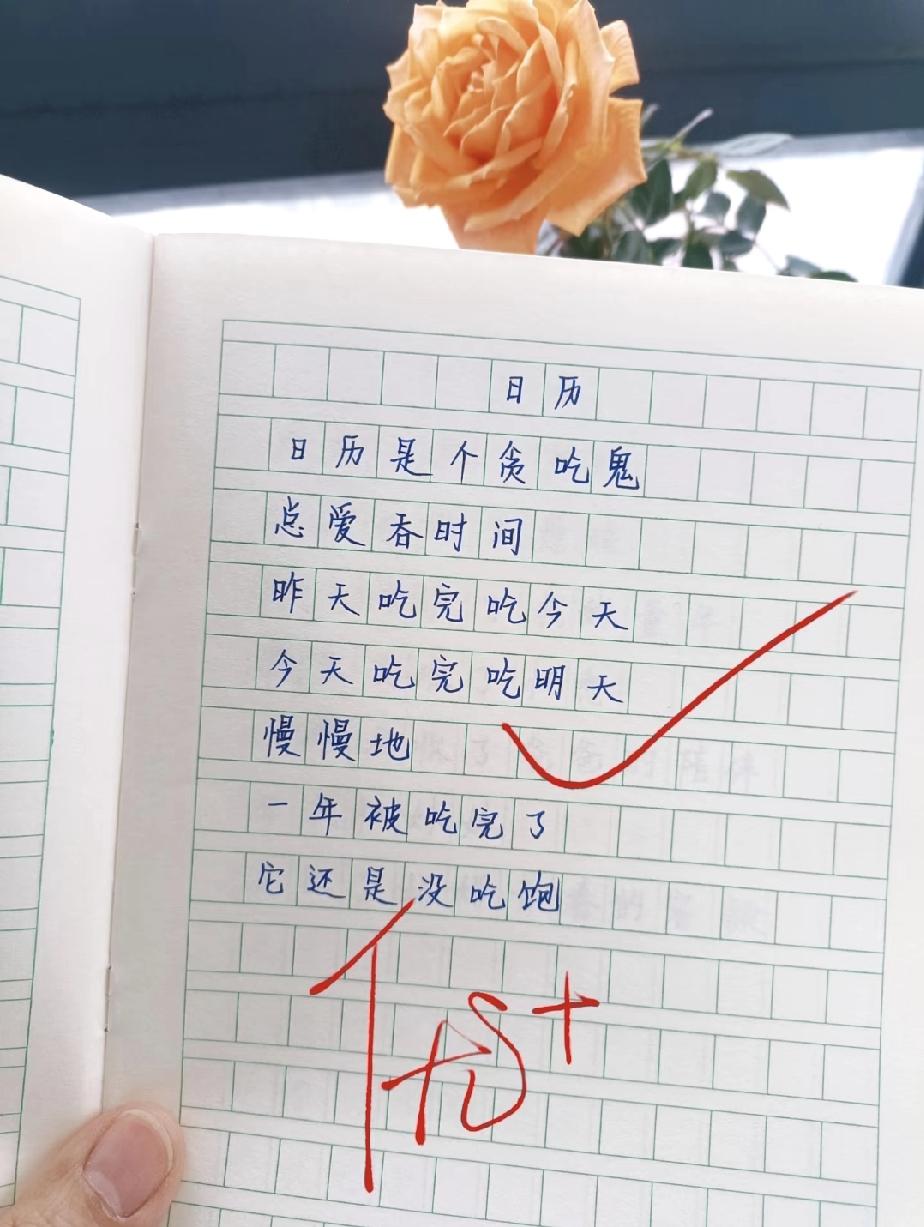 日历
日历是个贪吃鬼
总爱吞时间
昨天吃完吃今天
今天吃完吃明天
慢慢地
一年被吃完了
它还是没吃饱
优+